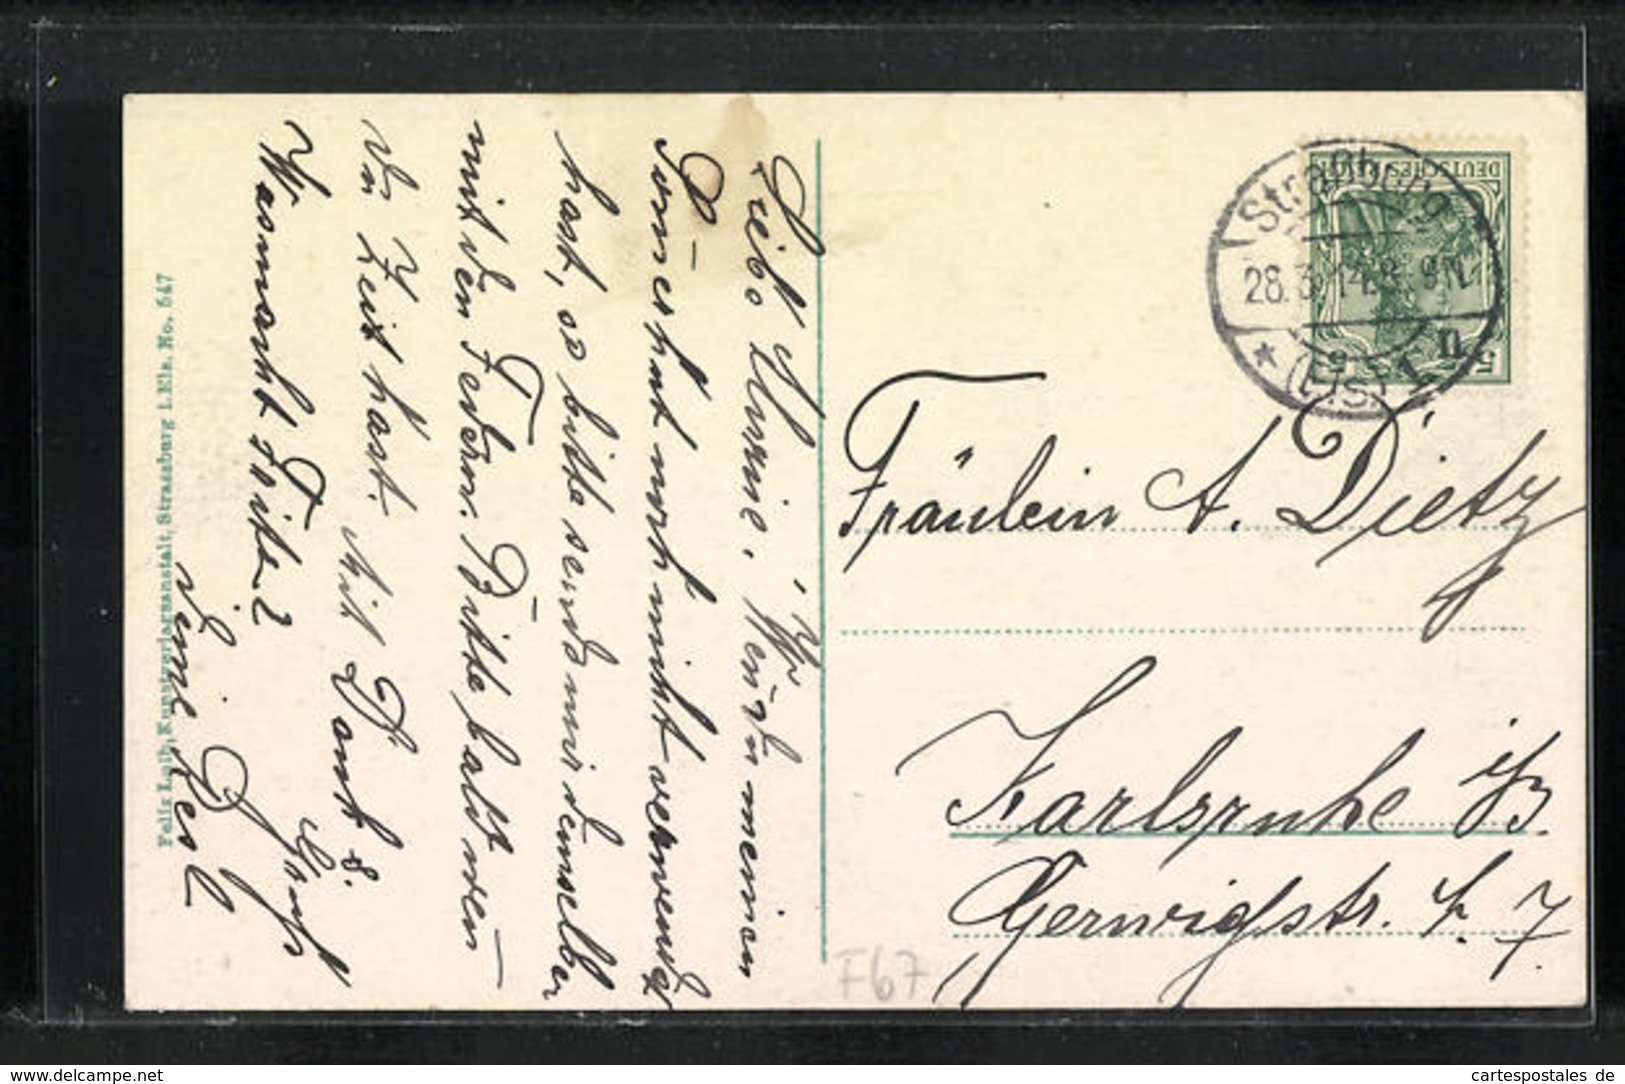 Liebe Annie, Wenn Du meinen
Sommerhut noch nicht verwendet
hast, so bitte sende mir denselben
mit den Federn. Bitte bald wenn
Du Zeit hast. Mit Dank &
Gruß
Was macht Fritz?
Deine Resl
Felix Luib, Kunstverlagsanstalt, Strassburg i. Els. No. 547
DEUTSCHES REICH
5 5
Straßburg
28.3.14.8-9N.
* (Els) 1
u
Fräulein A. Dietz
Karlsruhe i/B.
Gerwigstr. 7
F67
www.delcampe.net
cartespostales de